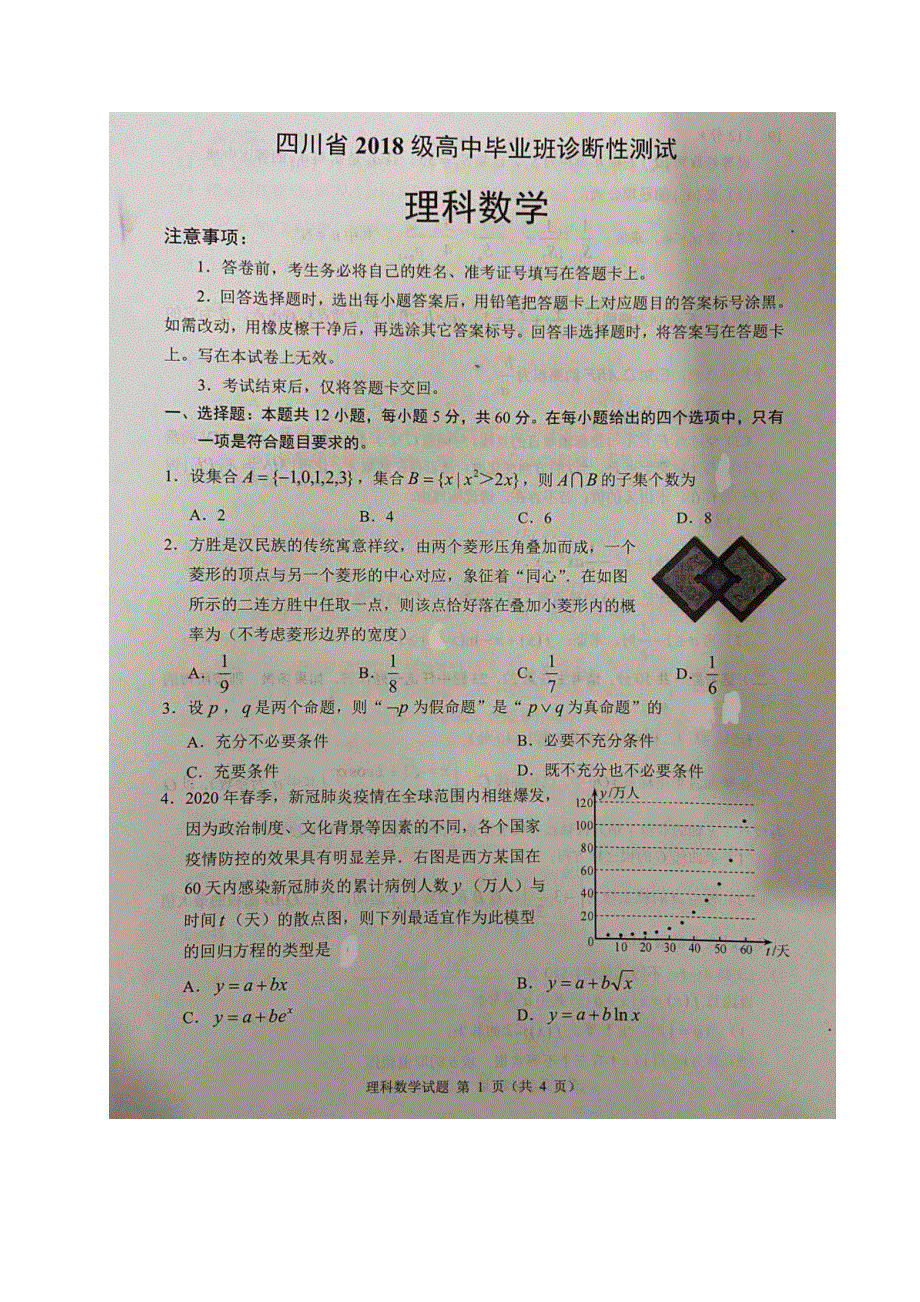 四川省 2018 级高中毕业班诊断性测试
理科数学
注意事项：
1．答卷前，考生务必将自己的姓名、准考证号填写在答题卡上。
2．回答选择题时，选出每小题答案后，用铅笔把答题卡上对应题目的答案标号涂黑。
如需改动，用橡皮擦干净后，再选涂其它答案标号。回答非选择题时，将答案写在答题卡
上。写在本试卷上无效。
3．考试结束后，仅将答题卡交回。
一、选择题：本题共 12 小题，每小题 5 分，共 60 分。在每小题给出的四个选项中，只有
一项是符合题目要求的。
1．设集合 A={−1,0,1,2,3}，集合 B={x|x²>2x}，则 A∩B 的子集个数为
A．2 B．4 C．6 D．8
2．方胜是汉民族的传统寓意祥纹，由两个菱形压角叠加而成，一个
菱形的顶点与另一个菱形的中心对应，象征着“同心”．在如图
所示的二连方胜中任取一点，则该点恰好落在叠加小菱形内的概
率为（不考虑菱形边界的宽度）
A．1/9 B．1/8 C．1/7 D．1/6
3．设 p，q 是两个命题，则“¬p 为假命题”是“p∨q 为真命题”的
A．充分不必要条件 B．必要不充分条件
C．充要条件 D．既不充分也不必要条件
4．2020 年春季，新冠肺炎疫情在全球范围内相继爆发，
因为政治制度、文化背景等因素的不同，各个国家
疫情防控的效果具有明显差异．右图是西方某国在
60 天内感染新冠肺炎的累计病例人数 y（万人）与
时间 t（天）的散点图，则下列最适宜作为此模型
的回归方程的类型是
y/万人
120
100
80
60
40
20
0 10 20 30 40 50 60 t/天
A．y=a+bx B．y=a+b√x
C．y=a+beˣ D．y=a+b ln x
理科数学试题 第 1 页（共 4 页）